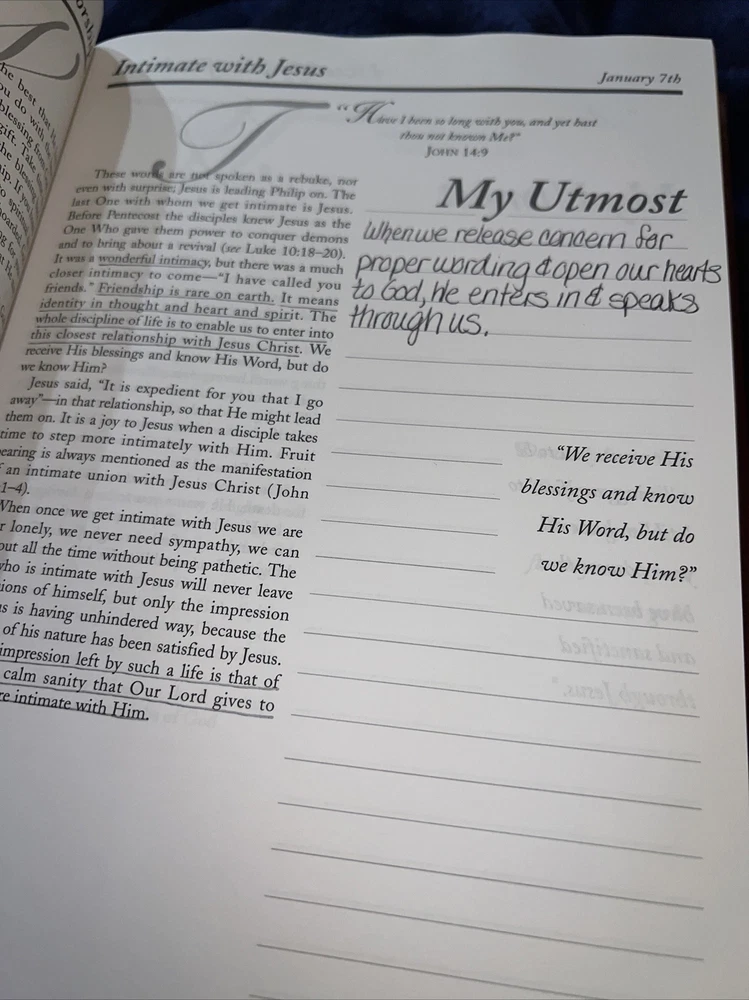 Intimate with Jesus
January 7th
T
"Have I been so long with you, and yet hast
thou not known Me?"
JOHN 14:9
These words are not spoken as a rebuke, nor
even with surprise; Jesus is leading Philip on. The
last One with whom we get intimate is Jesus.
Before Pentecost the disciples knew Jesus as the
One Who gave them power to conquer demons
and to bring about a revival (see Luke 10:18–20).
It was a wonderful intimacy, but there was a much
closer intimacy to come—"I have called you
friends." Friendship is rare on earth. It means
identity in thought and heart and spirit. The
whole discipline of life is to enable us to enter into
this closest relationship with Jesus Christ. We
receive His blessings and know His Word, but do
we know Him?
Jesus said, "It is expedient for you that I go
away"—in that relationship, so that He might lead
them on. It is a joy to Jesus when a disciple takes
time to step more intimately with Him. Fruit
earing is always mentioned as the manifestation
an intimate union with Jesus Christ (John
1–4).
When once we get intimate with Jesus we are
r lonely, we never need sympathy, we can
out all the time without being pathetic. The
who is intimate with Jesus will never leave
ions of himself, but only the impression
s is having unhindered way, because the
of his nature has been satisfied by Jesus.
impression left by such a life is that of
calm sanity that Our Lord gives to
re intimate with Him.
My Utmost
When we release concern for
proper wording & open our hearts
to God, He enters in & speaks
through us.
"We receive His
blessings and know
His Word, but do
we know Him?"